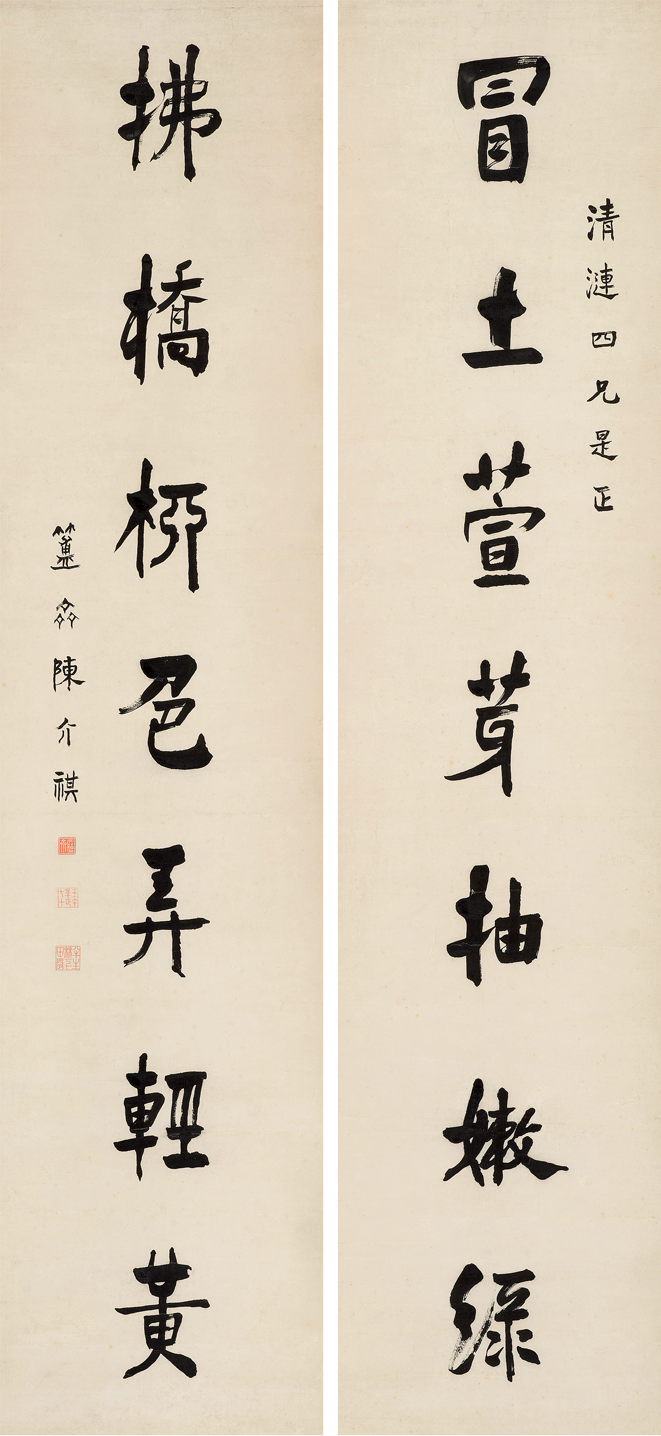 清漣四兄是正
冒土萱芽抽嫩綠
拂橋柳色弄輕黃
簠齋陳介祺